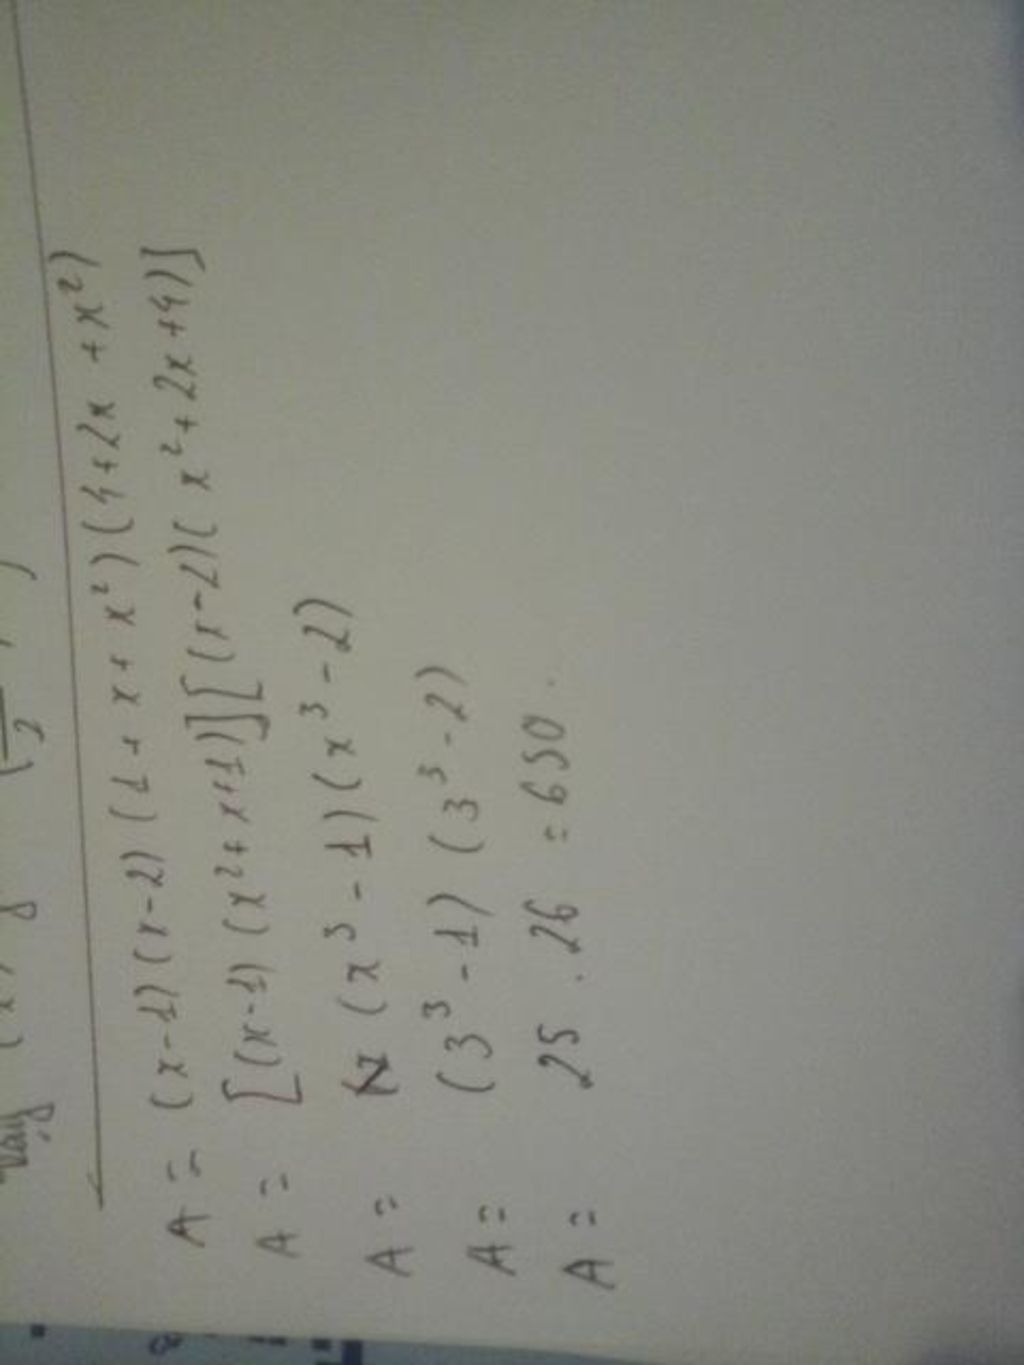 Vậy
A = (x-1)(x-2)(1+x+x²)(4+2x+x²)
A = [(x-1)(x²+x+1)][(x-2)(x²+2x+4)]
A = (x³-1)(x³-2)
A = (3³-1)(3³-2)
A = 25.26 = 650.